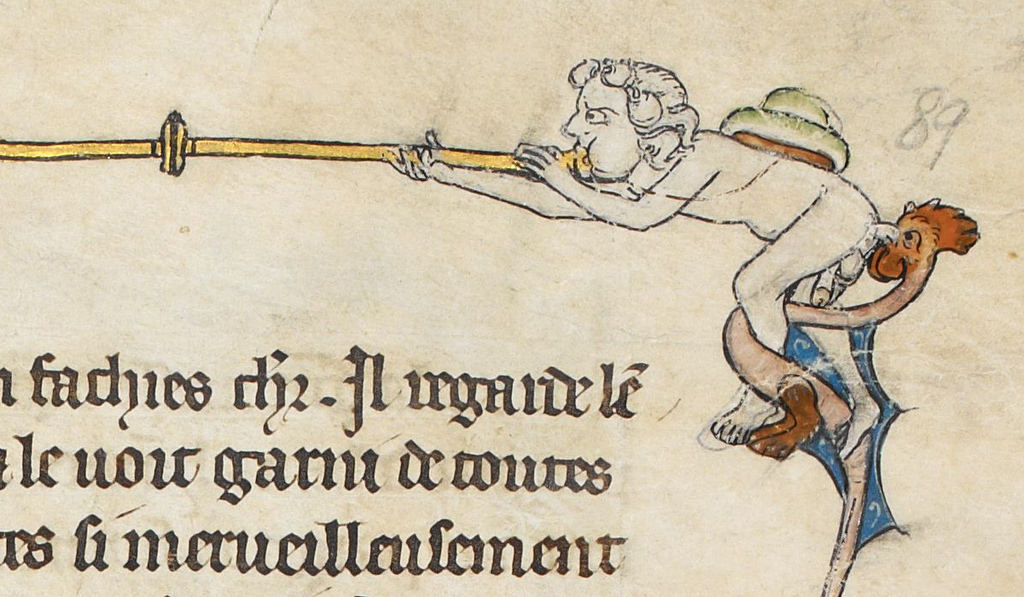 89
n sachies chr. Il regarde le
a le voit garni de toutes
tes si merueilleusement